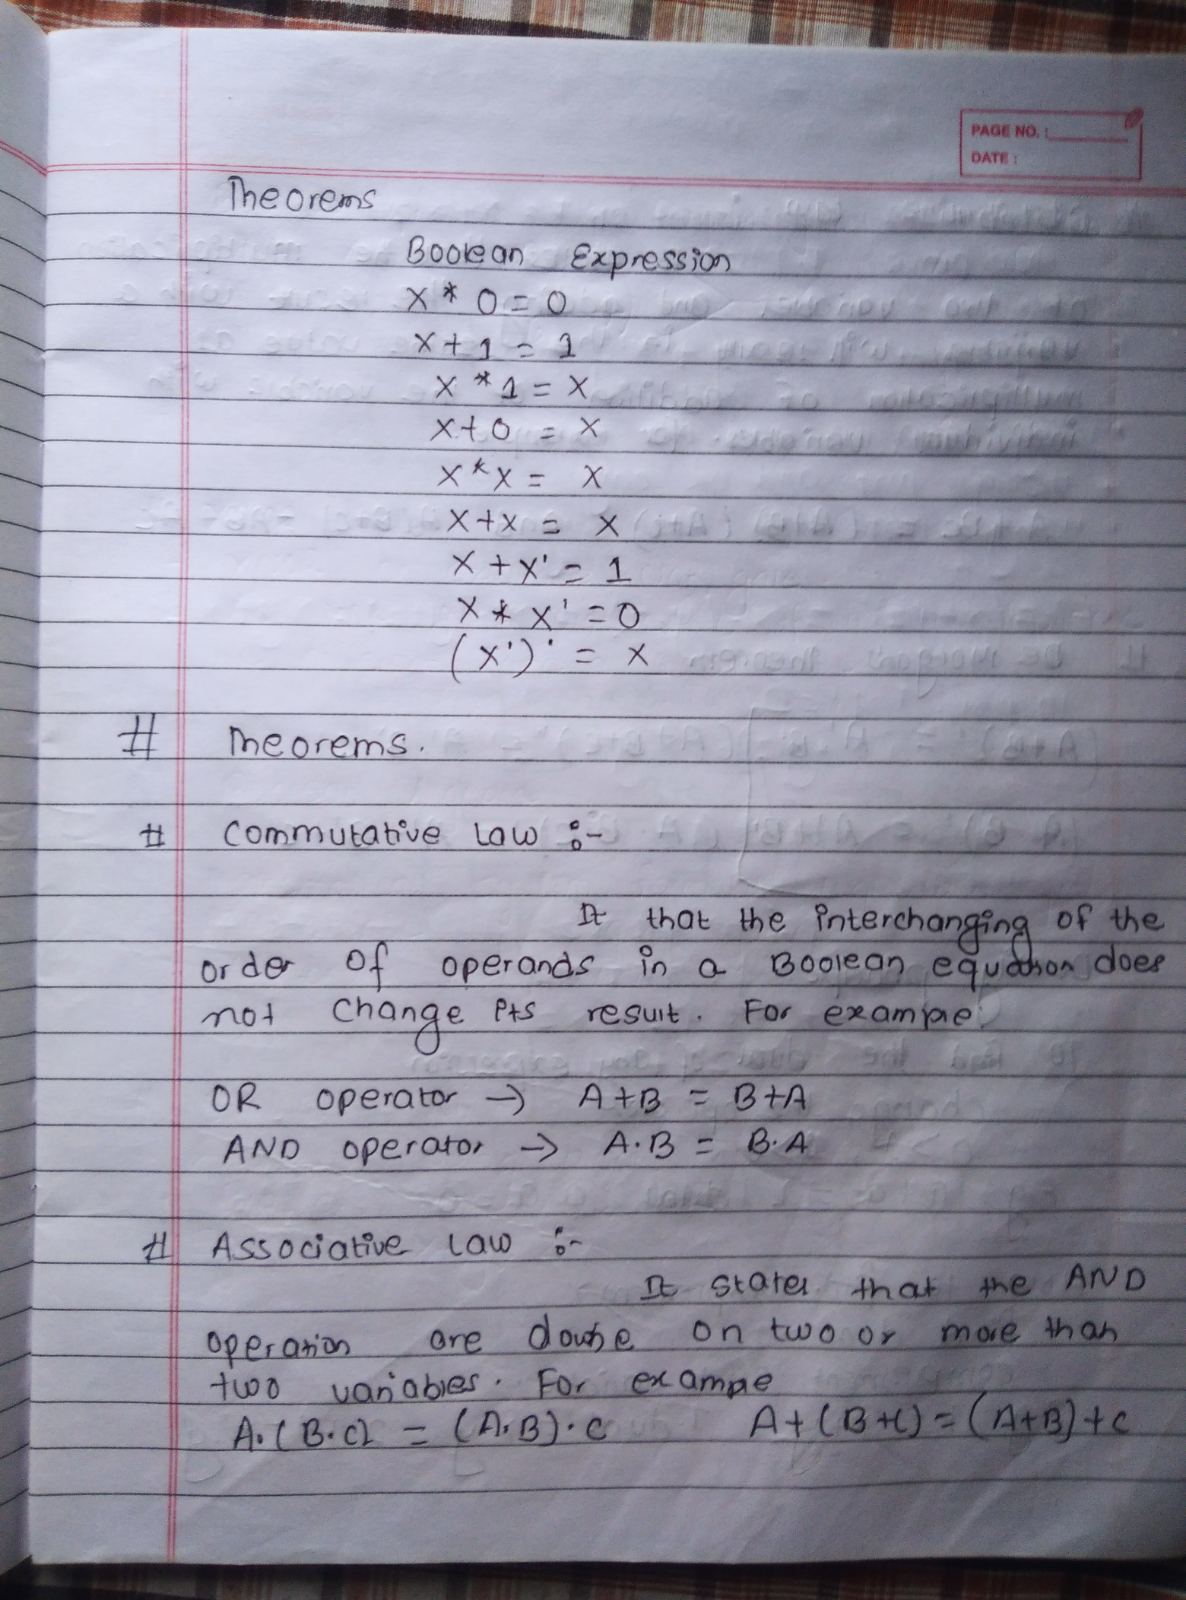 PAGE NO. :
DATE :
Theorems
Boolean Expression
X * 0 = 0
X + 1 = 1
X * 1 = X
X + 0 = X
X * X = X
X + X = X
X + X' = 1
X * X' = 0
(X')' = X
# Theorems.
# Commutative Law :-
It that the interchanging of the
order of operands in a Boolean equation does
not change its result. For example
OR operator → A+B = B+A
AND operator → A·B = B·A
# Associative Law :-
It states that the AND
operation are on two or more than
two variables. For example
A·(B·C) = (A·B)·C A+(B+C) = (A+B)+C